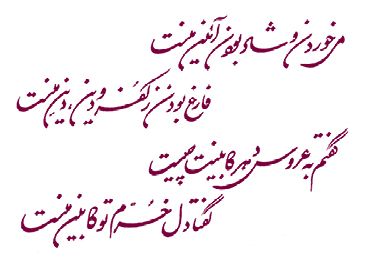 می خوردن و شاد بودن آئین منست
فارغ بودن ز کفر و دین، دین منست
گفتم به عروس دهر کابین تو چیست
گفتا دل خرّم تو کابین منست